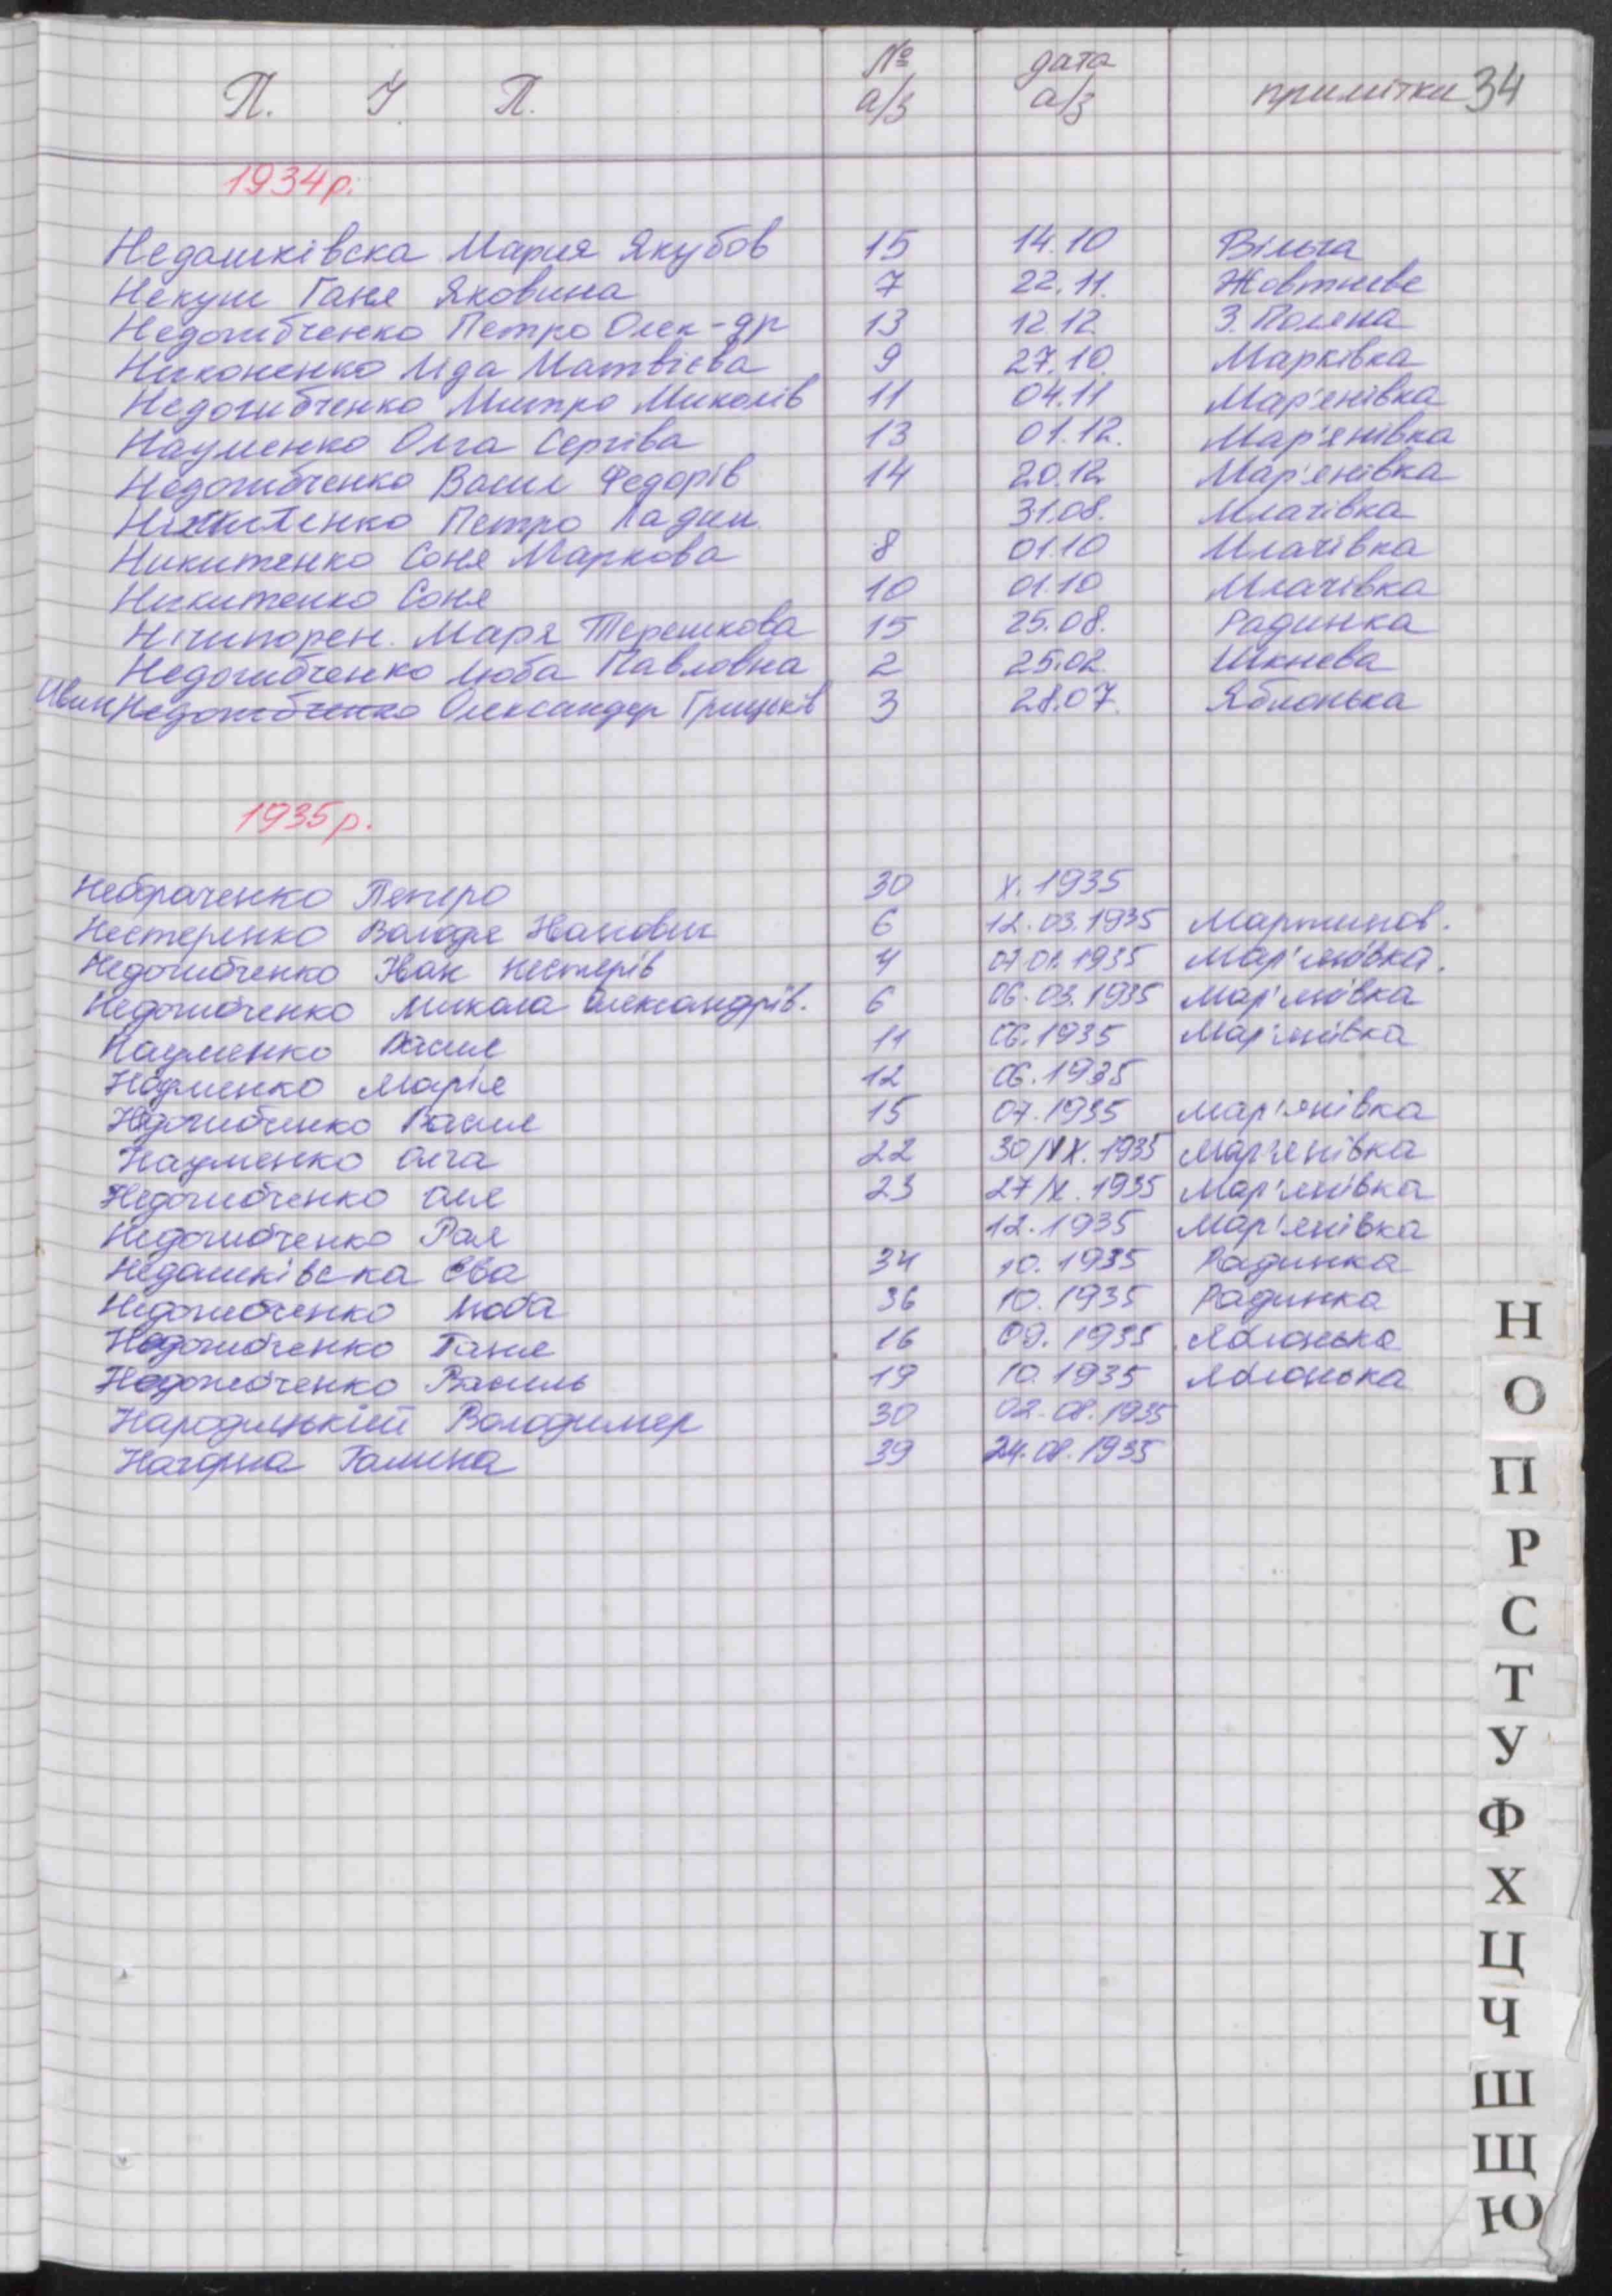 П. І. П. № а/з дата а/з примітки 34
1934р.
Недашківска Мария Якубов 15 14.10 Вільга
Некуш Ганя Яковина 7 22.11. Жовтневе
Недогибченко Петро Олек-др 13 12.12 З. Поляна
Никоненко Ліда Матвієва 9 27.10. Марківка
Недогибченко Митро Миколів 11 04.11 Мар'янівка
Науменко Олга Сергіва 13 01.12. Мар'янівка
Недогибченко Васил Федорів 14 20.12 Мар'янівка
Петро 31.08. Млачівка
Никитенко Соня Маркова 8 01.10 Млачівка
Никитенко Соня 10 01.10 Млачівка
Нічипорен. Маря Терешкова 15 25.08. Радинка
Недогибченко Люба Павловна 2 25.02. Шкнева
Недогибченко Олександр Грицьків 3 28.07. Яблонька
1935р.
Петро 30 X. 1935
Нестеренко Володя 6 12.03.1935 Мартинов.
Недогибченко Іван Нестерів 4 07.01.1935 Мар'янівка.
Недогибченко Микола Олександрів. 6 06.03.1935 Мар'янівка
Науменко Васил 11 06.1935 Мар'янівка
Науменко Марія 12 06.1935
Недогибченко Васил 15 07.1935 Мар'янівка
Науменко Олга 22 1935 Мар'янівка
Недогибченко Оля 23 27/X. 1935 Мар'янівка
Недогибченко Рая 12.1935 Мар'янівка
Недашківска Єва 34 10.1935 Радинка
Недогибченко Люба 36 10.1935 Радинка
Недогибченко Ганя 16 09.1935 Яблонька
Недогибченко Василь 19 10.1935 Яблонька
Народицький Володимер 30 02.08.1935
Нагорна Галина 39 24.08.1935
Н
О
П
Р
С
Т
У
Ф
Х
Ц
Ч
Ш
Щ
Ю